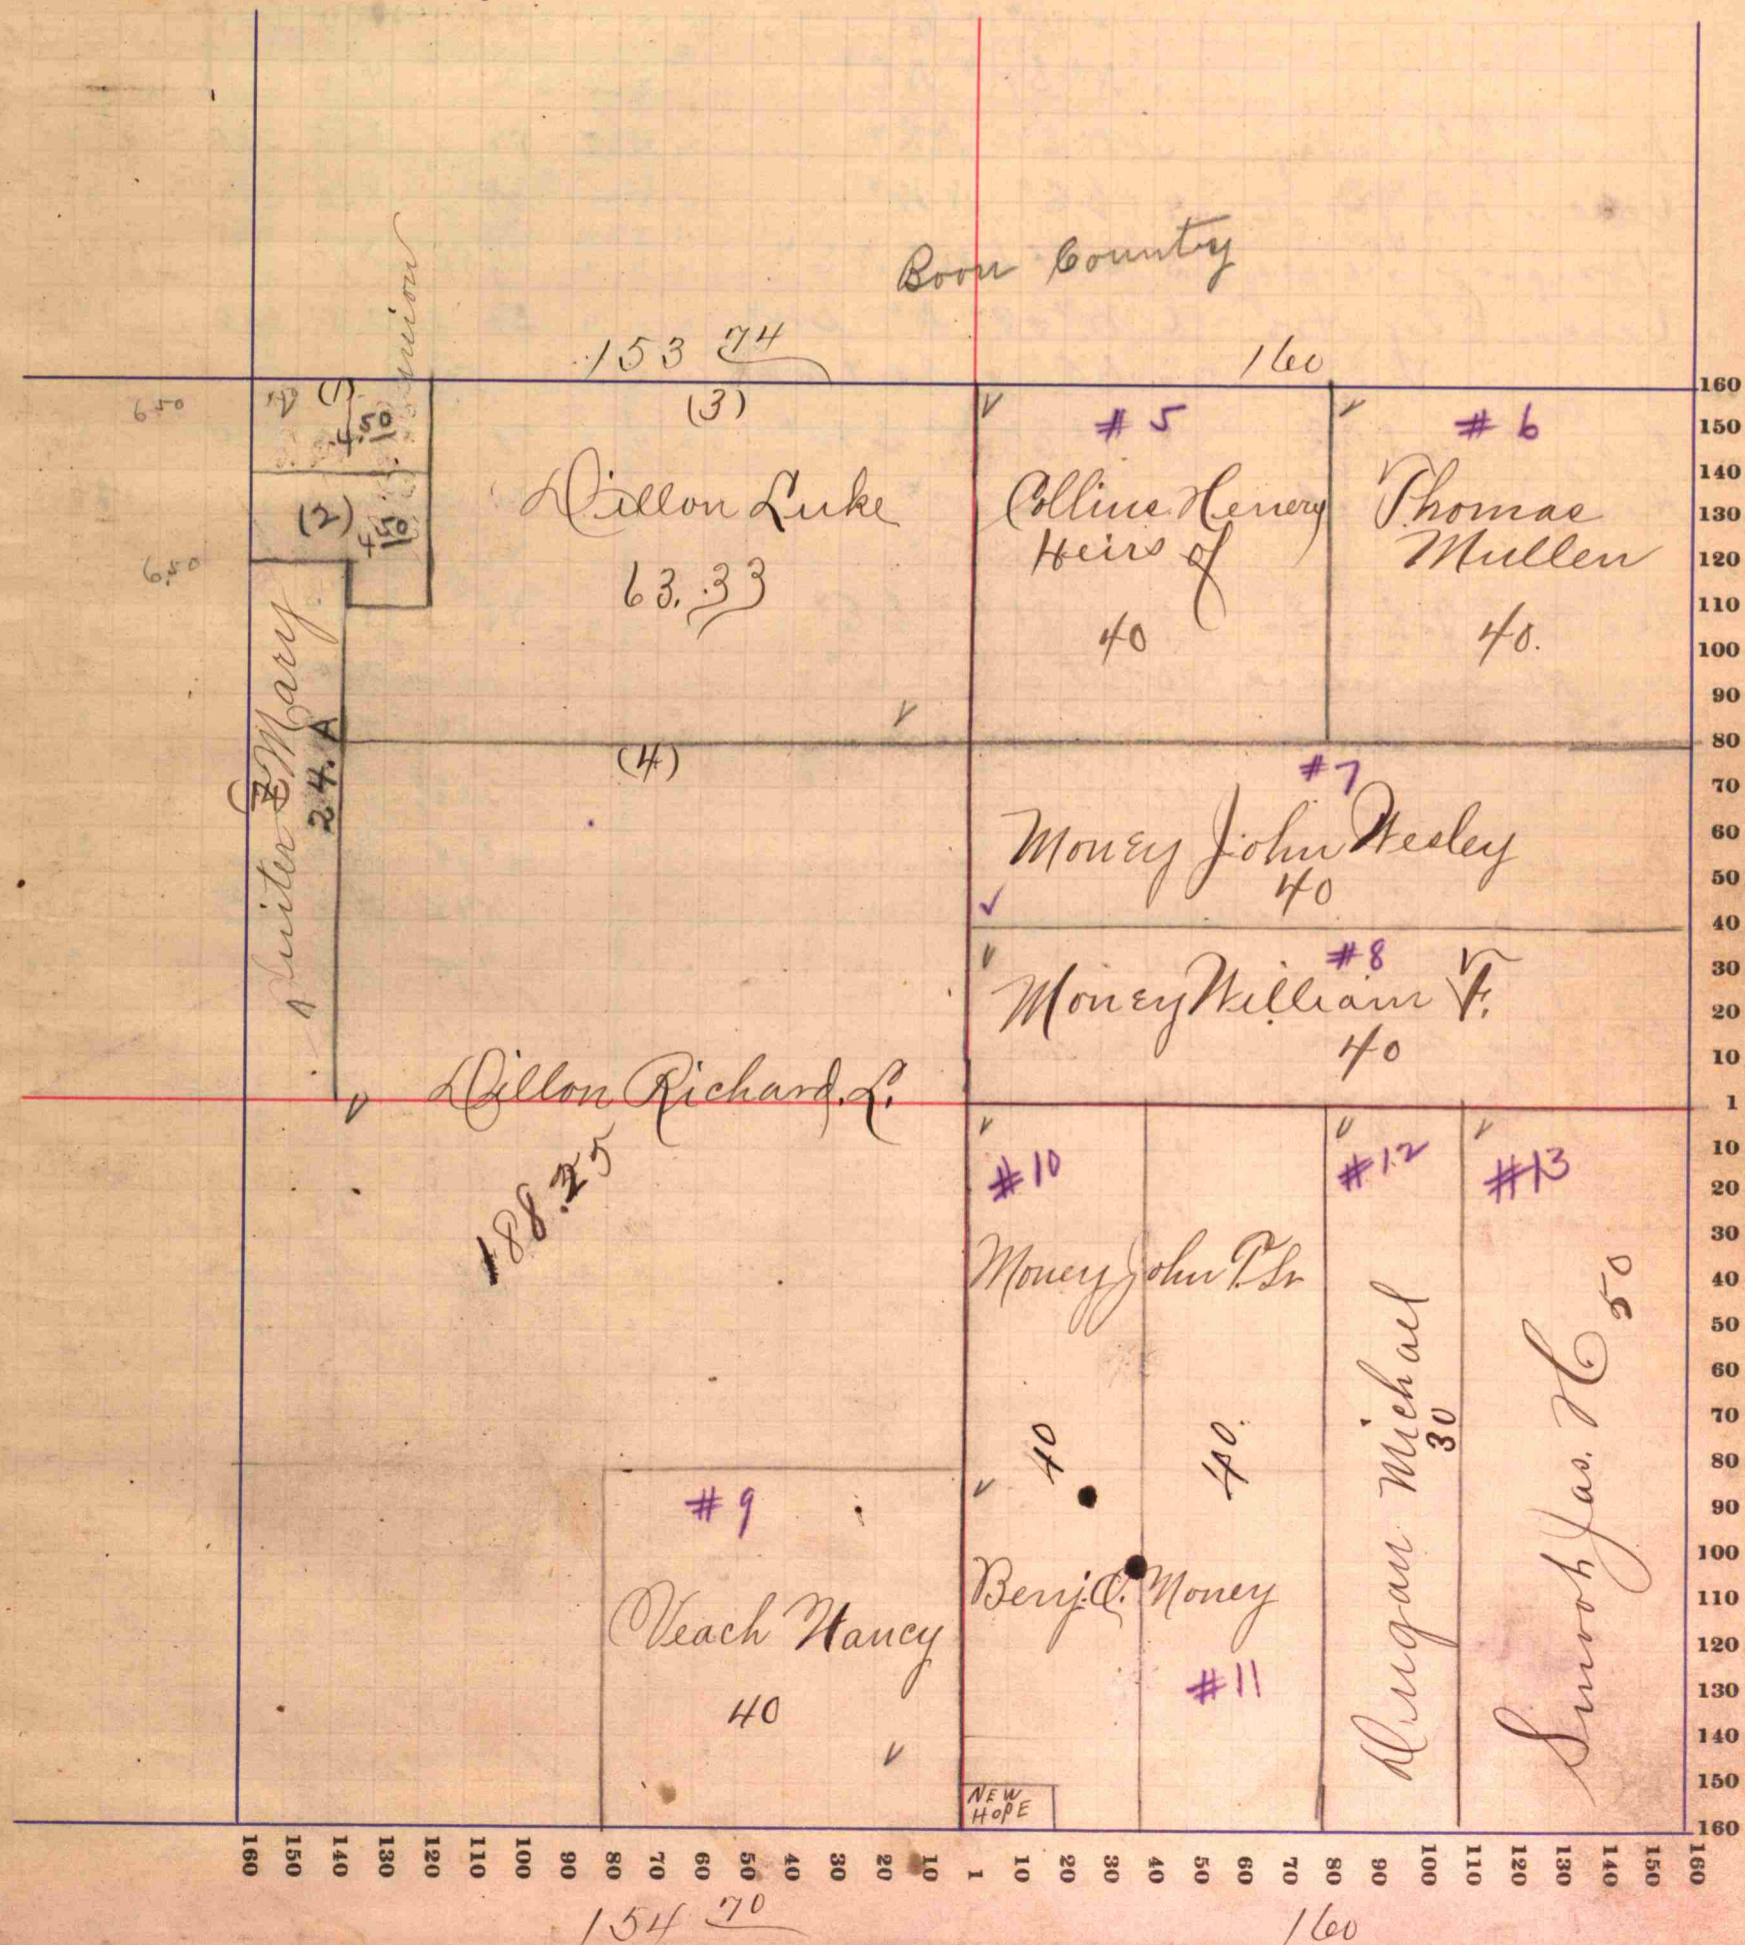 Boon County
153 74
160
(1)
4.50
650
(3)
# 5
# 6
Dillon Luke
63.33
Collins Henery
Heirs of
40
Thomas
Mullen
40.
(2)
4 50
650
Mary
24. A
(4)
#7
Money John Wesley
40
#8
Money William F.
40
Dillon Richard. L.
188.25
#10
Money John T. Sr
40
40.
#12
Dugan Michael
30
#13
Smoot Jas. H
50
#9
Veach Nancy
40
Benj. C. Money
#11
NEW
HOPE
160
150
140
130
120
110
100
90
80
70
60
50
40
30
20
10
1
10
20
30
40
50
60
70
80
90
100
110
120
130
140
150
160
160 150 140 130 120 110 100 90 80 70 60 50 40 30 20 10 1 10 20 30 40 50 60 70 80 90 100 110 120 130 140 150 160
154 70
160